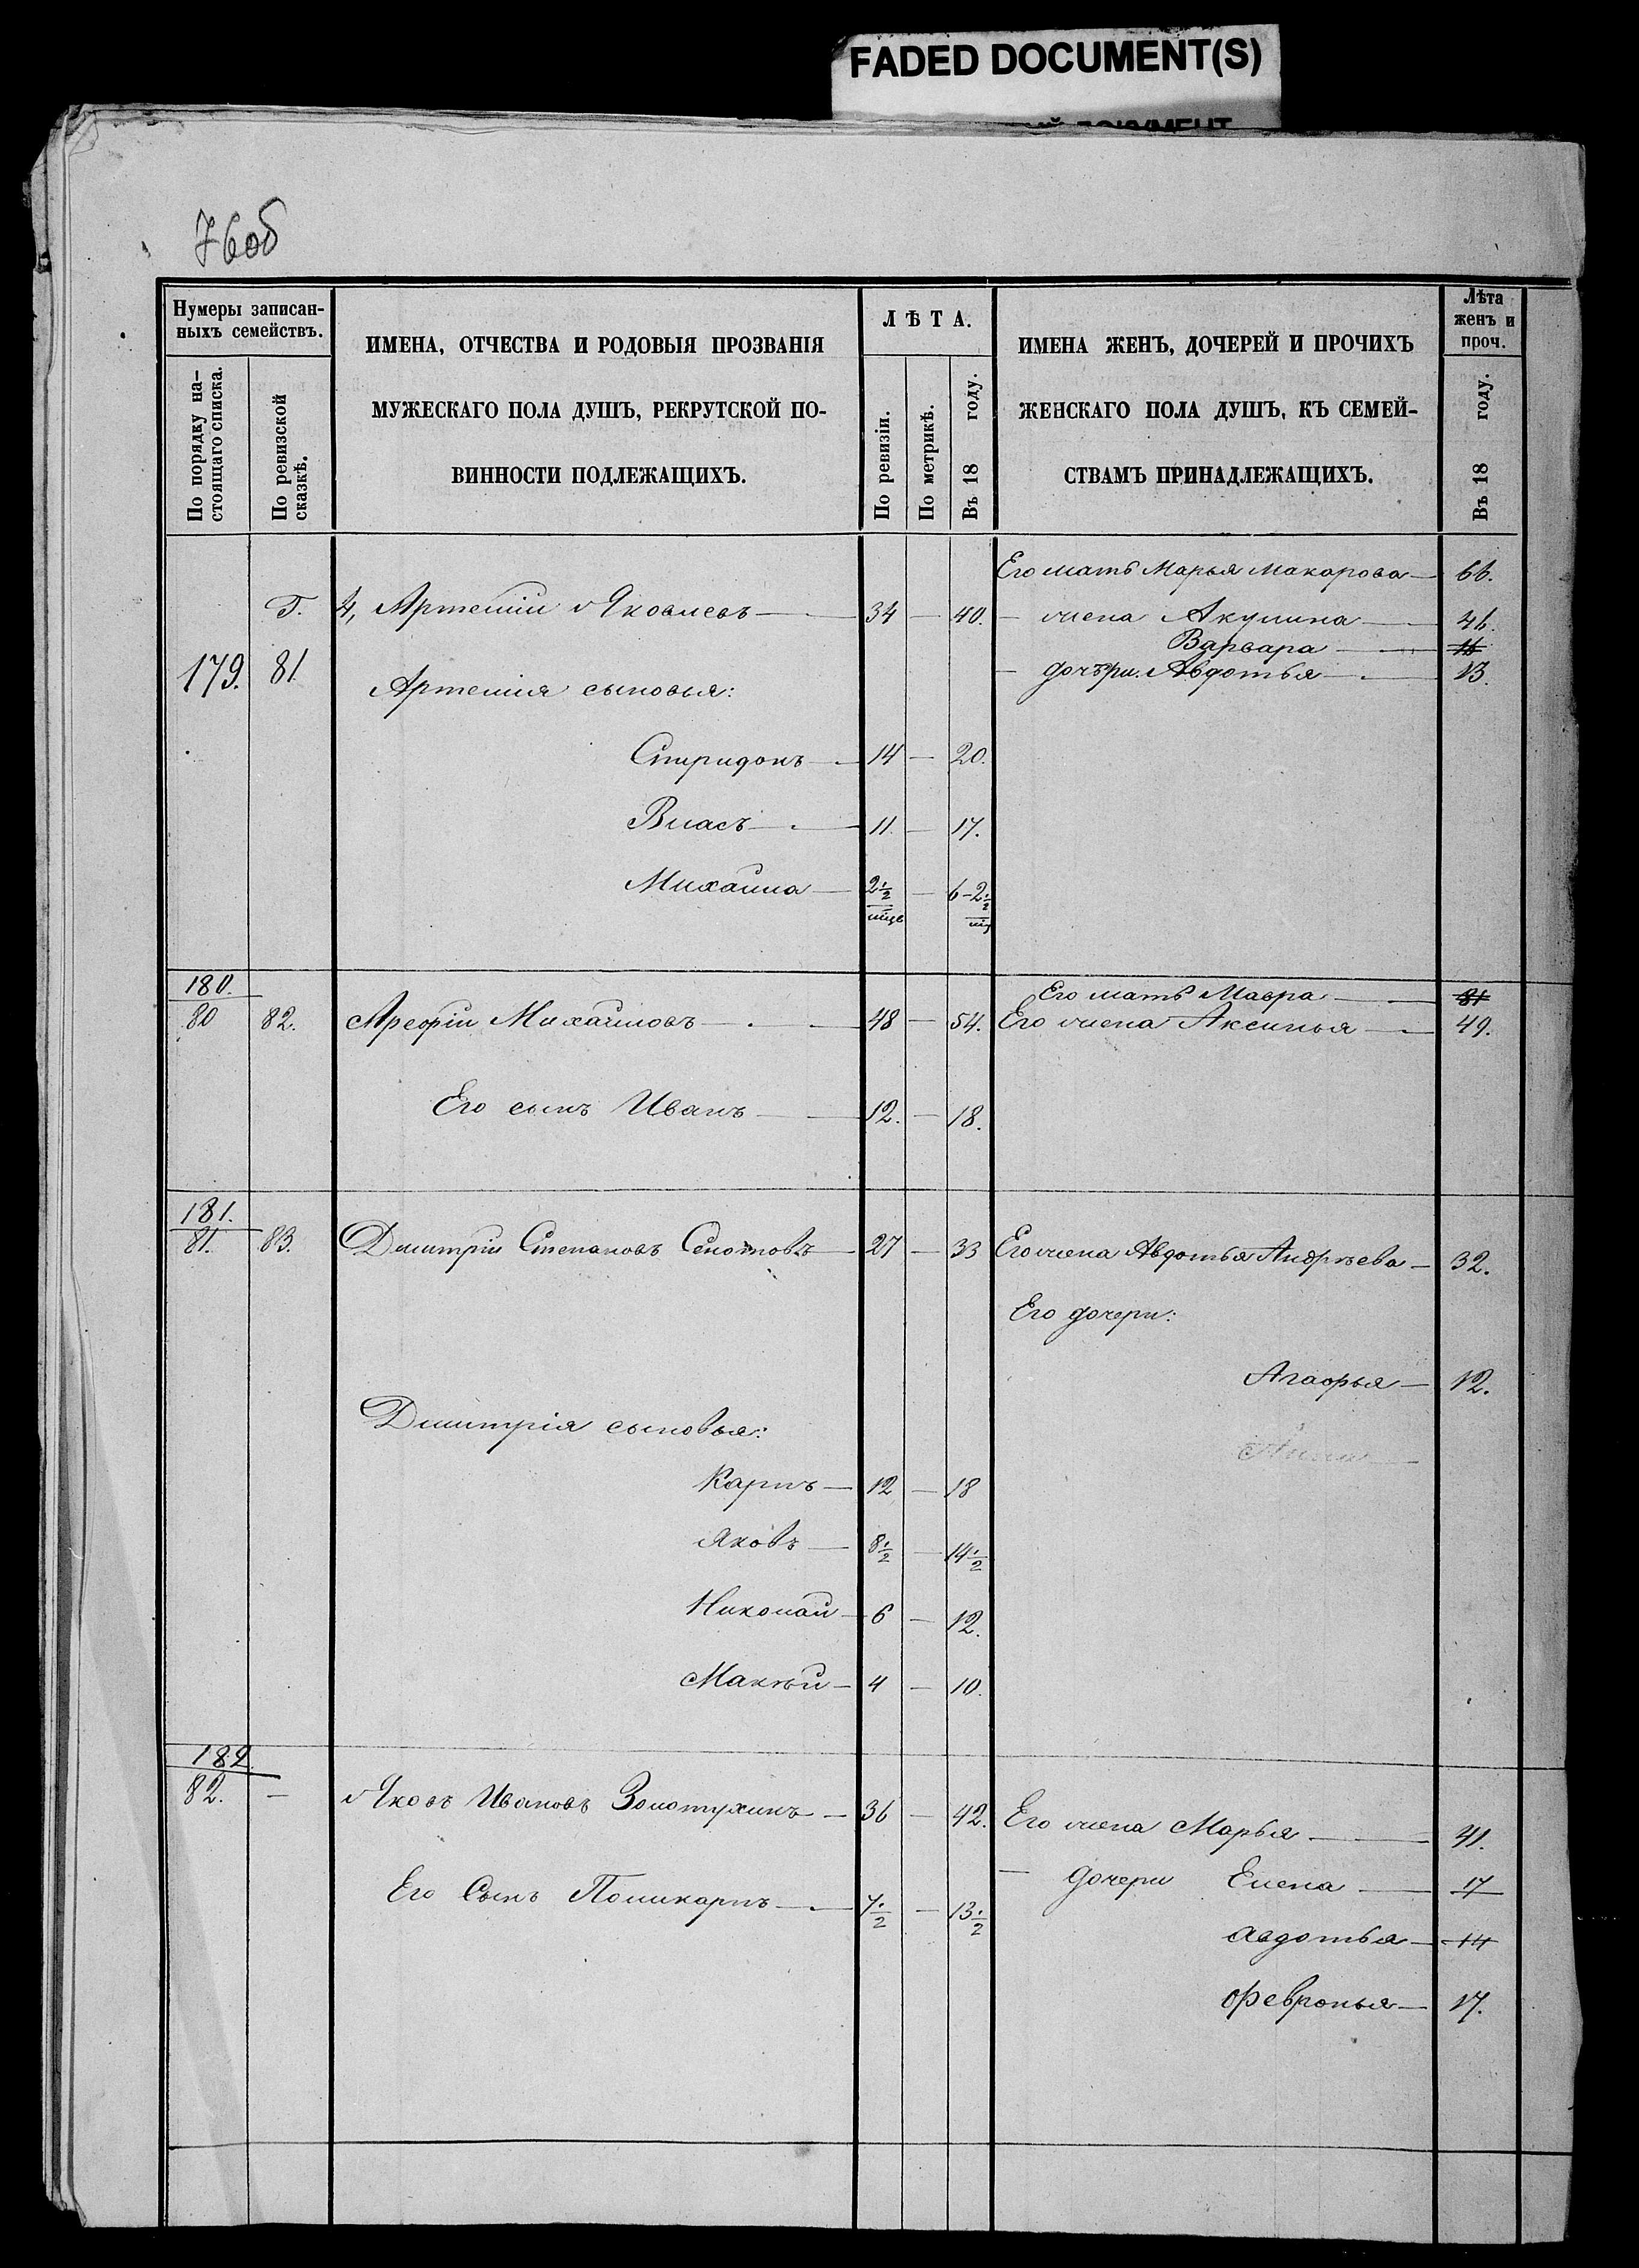 FADED DOCUMENT(S)
76об
Нумеры записан-
ныхъ семействъ.
По порядку на-
стоящаго списка.
По ревизской
сказкѣ.
ИМЕНА, ОТЧЕСТВА И РОДОВЫЯ ПРОЗВАНІЯ
МУЖЕСКАГО ПОЛА ДУШЪ, РЕКРУТСКОЙ ПО-
ВИННОСТИ ПОДЛЕЖАЩИХЪ.
ЛѢТА.
По ревизіи.
По метрикѣ.
Въ 18 году.
ИМЕНА ЖЕНЪ, ДОЧЕРЕЙ И ПРОЧИХЪ
ЖЕНСКАГО ПОЛА ДУШЪ, КЪ СЕМЕЙ-
СТВАМЪ ПРИНАДЛЕЖАЩИХЪ.
Лѣта
женъ и
проч.
Въ 18 году.
Его мать Марья Макарова — 66.
Г. 4, Артемій Яковлевъ — 34 — 40. — жена Акулина — 46.
Варвара — 16
179. 81 Артемія сыновья: — дочѣри. Авдотья — 13.
Спиридонъ — 14 — 20.
Власъ — 11 — 17.
Михаила — 2 1/2 — 6-2 1/2
180. Его мать Мавра — 81
80 82. Арефій Михайловъ — 48 — 54. Его жена Аксинья — 49.
Его сынъ Иванъ — 12. — 18.
181.
81. 83. Дмитрій Степановъ — 27 — 33 Его жена Авдотья Андрѣева — 32.
Его дочери:
Агафья — 12.
Дмитрія сыновья:
Анна —
Карпъ — 12 — 18
Яковъ — 8 1/2 — 14 1/2
Николай — 6 — 12.
Макѣй — 4 — 10.
182.
82. — Яковъ Ивановъ Золотухинъ — 36 — 42. Его жена Марья — 41.
— дочери Елена — 17
Его Сынъ Поликарпъ — 7 1/2 — 13 1/2
Авдотья — 14
Февронья — 17.